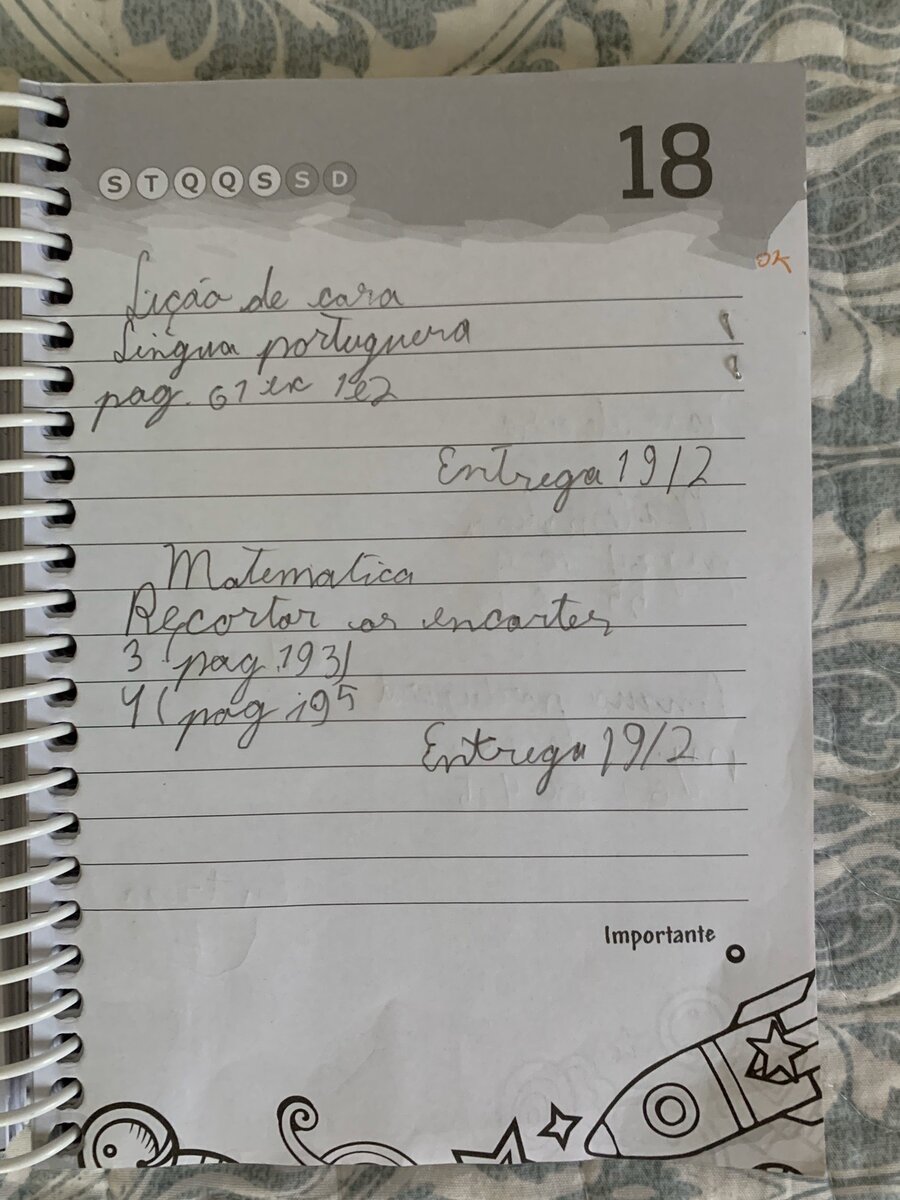 S T Q Q S S D
18
ok
Lição de casa
Língua portuguesa
pag. 61 ex 1e2
Entrega 19/2
Matematica
Recortar os encartes
3 (pag 193)
4 (pag 195
Entrega 19/2
Importante